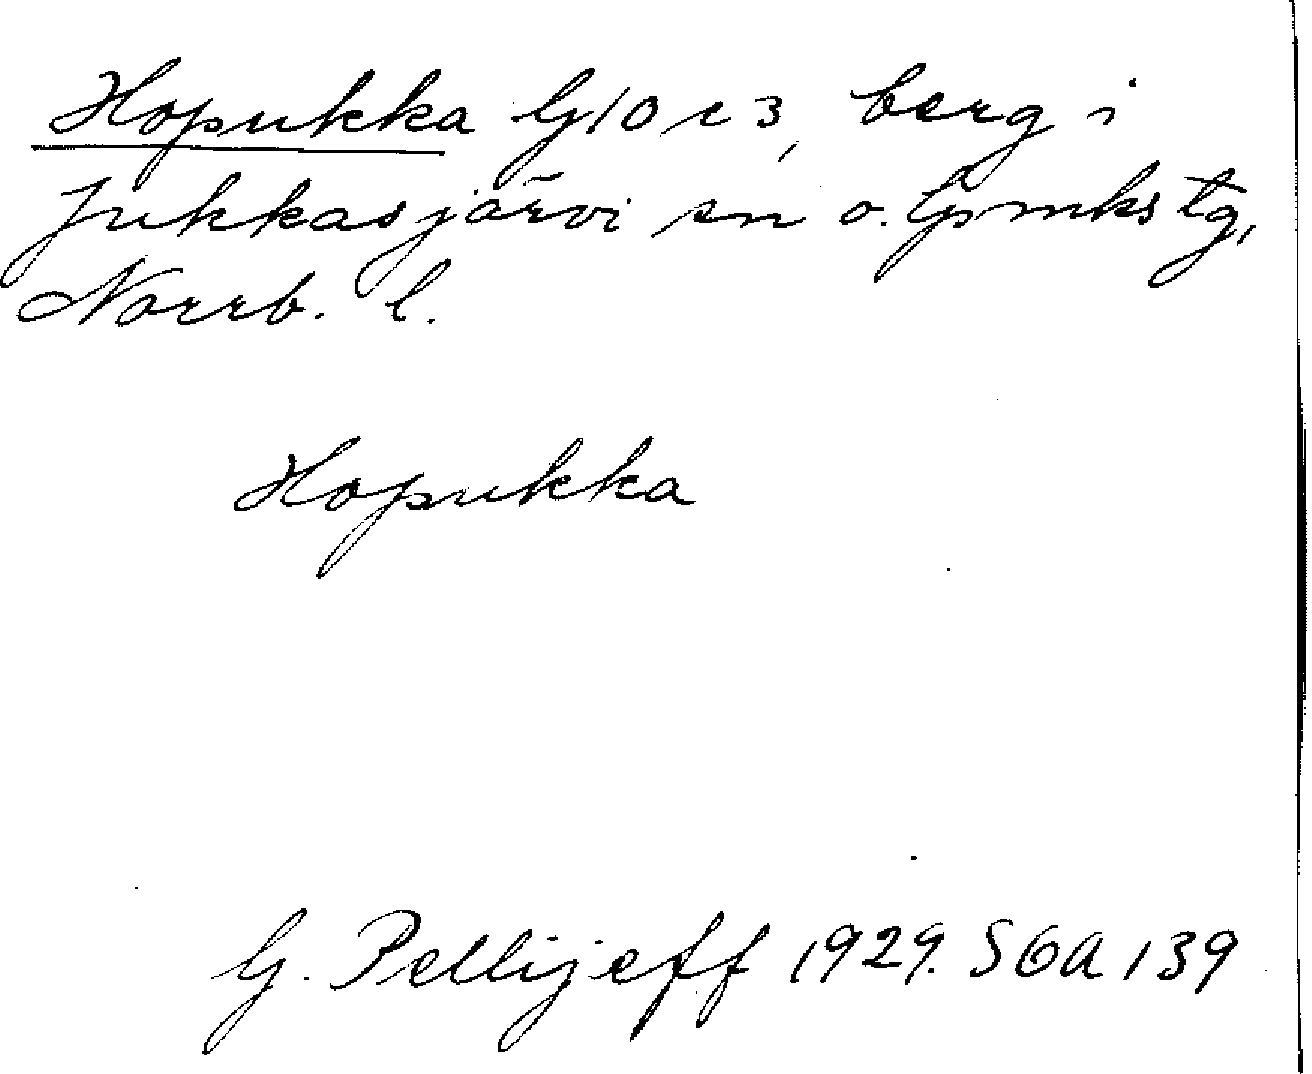 Hopukka G10 c 3, berg i
Jukkasjärvi sn o. lpmks tg,
Norrb. l.
Hopukka
G. Pellijeff 1929. SOA 139